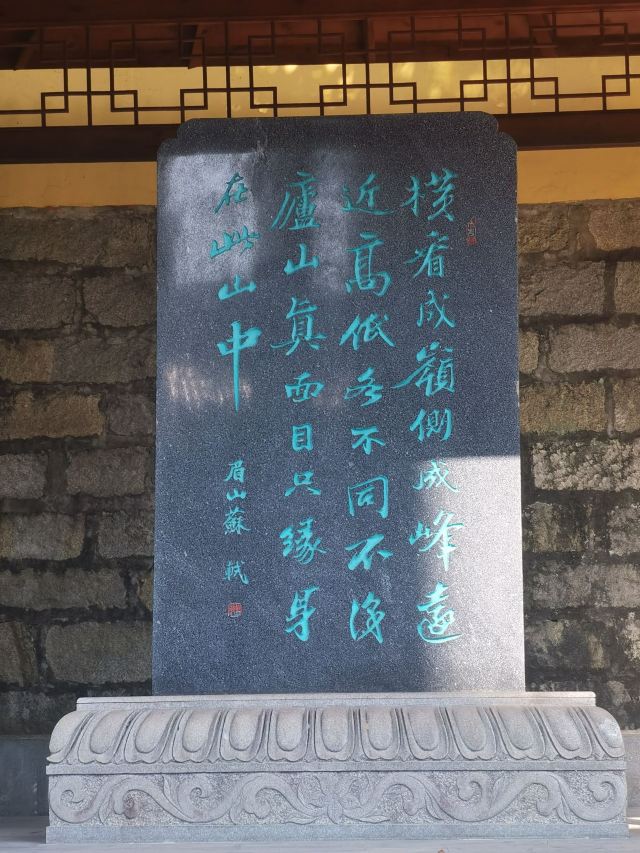 横看成嶺側成峰遠
近高低各不同不識
廬山眞面目只緣身
在此山中
眉山蘇軾